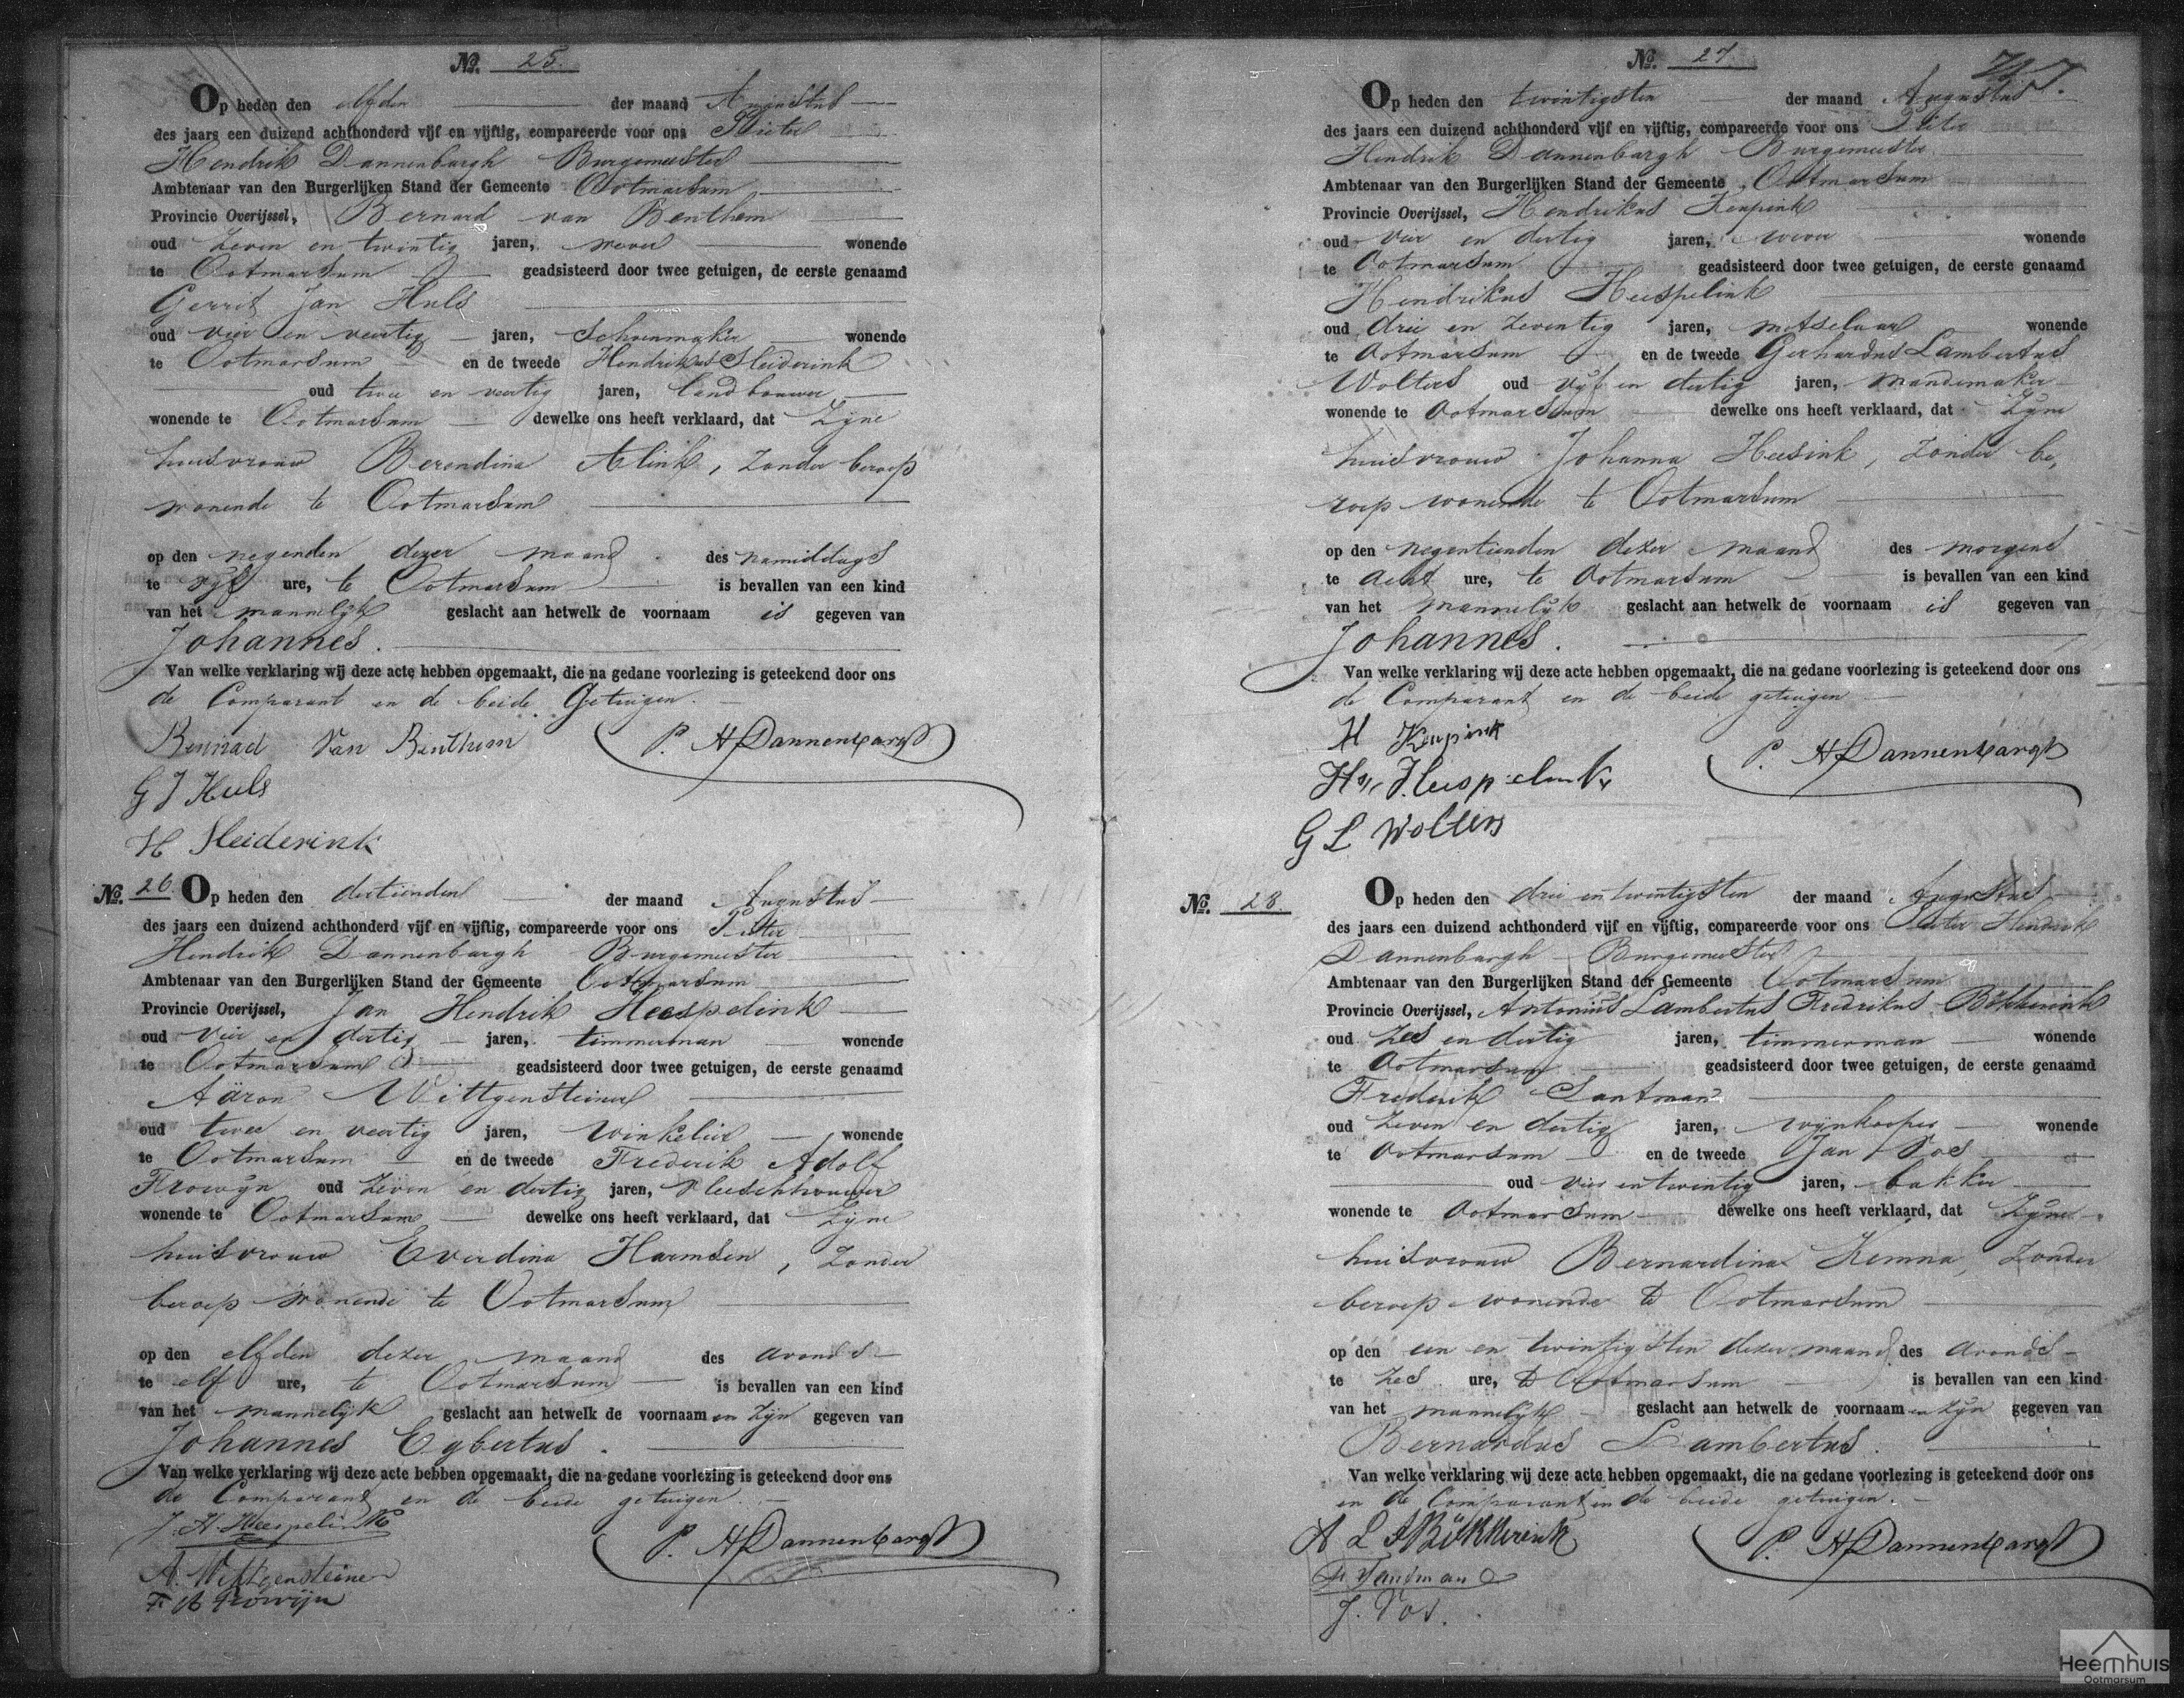 No. 25.
Op heden den elfden der maand Augustus
des jaars een duizend achthonderd vijf en vijftig, compareerde voor ons Pieter
Hendrik Dannenbargh Burgemeester
Ambtenaar van den Burgerlijken Stand der Gemeente Ootmarsum
Provincie Overijssel, Bernard van Benthem
oud zeven en twintig jaren, wever wonende
te Ootmarsum geadsisteerd door twee getuigen, de eerste genaamd
Gerrit Jan Huls
oud vier en veertig jaren, Schoenmaker wonende
te Ootmarsum en de tweede Hendrikus Sleiderink
oud twee en veertig jaren, landbouwer
wonende te Ootmarsum dewelke ons heeft verklaard, dat Zijne
huisvrouw Berendina Alink, zonder beroep
wonende te Ootmarsum
op den negenden dezer maand des namiddags
te vijf ure, te Ootmarsum is bevallen van een kind
van het mannelijk geslacht aan hetwelk de voornaam is gegeven van
Johannes.
Van welke verklaring wij deze acte hebben opgemaakt, die na gedane voorlezing is geteekend door ons
de Comparant en de beide Getuigen.
Bernad Van Benthem P. H Dannenbargh
G J Huls
H Sleiderink
No. 26. Op heden den dertienden der maand Augustus
des jaars een duizend achthonderd vijf en vijftig, compareerde voor ons Pieter
Hendrik Dannenbargh Burgemeester
Ambtenaar van den Burgerlijken Stand der Gemeente Ootmarsum
Provincie Overijssel, Jan Hendrik Heespelink
oud vier en dertig jaren, timmerman wonende
te Ootmarsum geadsisteerd door twee getuigen, de eerste genaamd
Aäron Wittgensteiner
oud twee en veertig jaren, Winkelier wonende
te Ootmarsum en de tweede Frederik Adolf
Frowijn oud zeven en dertig jaren, Vleeschhouwer
wonende te Ootmarsum dewelke ons heeft verklaard, dat Zijne
huisvrouw Everdina Harmsen, zonder
beroep wonende te Ootmarsum
op den elfden dezer maand des avonds
te elf ure, te Ootmarsum is bevallen van een kind
van het mannelijk geslacht aan hetwelk de voornaam en zijn gegeven van
Johannes Egbertus.
Van welke verklaring wij deze acte hebben opgemaakt, die na gedane voorlezing is geteekend door ons
de Comparant en de beide getuigen.
J. H. Heespelink P. H Dannenbargh
A. Wittgensteiner
F. A Frowijn
No. 27.
Op heden den twintigsten der maand Augustus
des jaars een duizend achthonderd vijf en vijftig, compareerde voor ons Pieter
Hendrik Dannenbargh Burgemeester
Ambtenaar van den Burgerlijken Stand der Gemeente Ootmarsum
Provincie Overijssel, Hendrikus Keupink
oud vier en dertig jaren, wever wonende
te Ootmarsum geadsisteerd door twee getuigen, de eerste genaamd
Hendrikus Heespelink
oud drie en zeventig jaren, metselaar wonende
te Ootmarsum en de tweede Gerhardus Lambertus
Wolters oud vijf en dertig jaren, mandemaker
wonende te Ootmarsum dewelke ons heeft verklaard, dat Zijne
huisvrouw Johanna Heesink, zonder be,
roep wonende te Ootmarsum
op den negentienden dezer maand des morgens
te acht ure, te Ootmarsum is bevallen van een kind
van het mannelijk geslacht aan hetwelk de voornaam is gegeven van
Johannes.
Van welke verklaring wij deze acte hebben opgemaakt, die na gedane voorlezing is geteekend door ons
de Comparant en de beide getuigen
H Keupink P. H Dannenbargh
Hr. Heespelink
G L Wolters
No. 28. Op heden den drie en twintigsten der maand Augustus
des jaars een duizend achthonderd vijf en vijftig, compareerde voor ons Pieter Hendrik
Dannenbargh Burgemeester
Ambtenaar van den Burgerlijken Stand der Gemeente Ootmarsum
Provincie Overijssel, Antonius Lambertus Fredrikus Bökkerink
oud zes en dertig jaren, timmerman wonende
te Ootmarsum geadsisteerd door twee getuigen, de eerste genaamd
Frederik Santman
oud zeven en dertig jaren, wijnkooper wonende
te Ootmarsum en de tweede Jan Vos
oud vier en twintig jaren, bakker
wonende te Ootmarsum dewelke ons heeft verklaard, dat Zijne
huisvrouw Bernardina Kemna, zonder
beroep wonende te Ootmarsum
op den een en twintigsten dezer maand des avonds
te zes ure, te Ootmarsum is bevallen van een kind
van het mannelijk geslacht aan hetwelk de voornaam en zijn gegeven van
Bernardus Lambertus.
Van welke verklaring wij deze acte hebben opgemaakt, die na gedane voorlezing is geteekend door ons
en de Comparant en de beide getuigen.
A L F Bökkerink P. H Dannenbargh
F. Santman
J. Vos.
Heemhuis
Ootmarsum